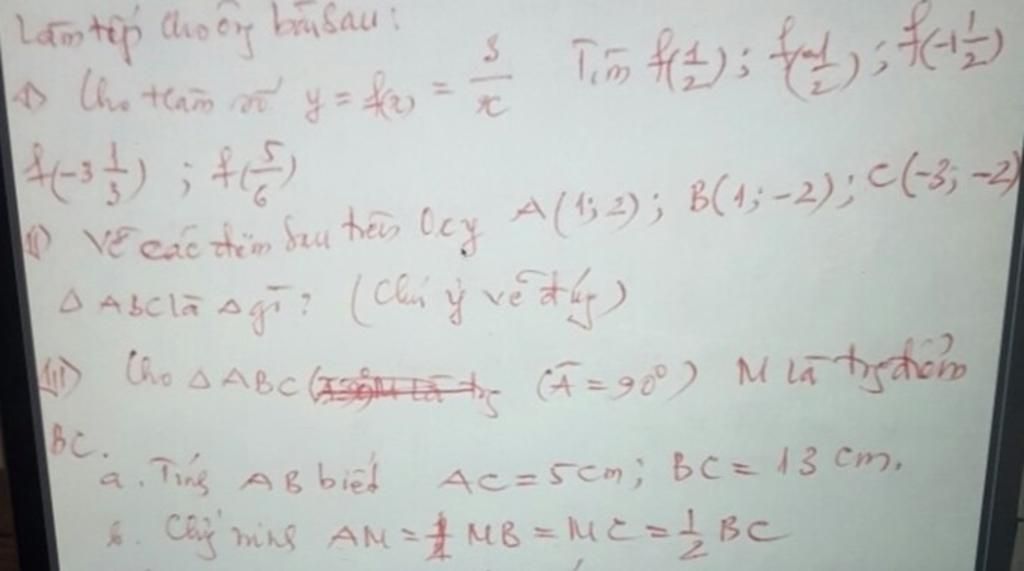 Làm tiếp cho ông bài sau:
I) Cho hàm số y = f(x) = 5/x Tìm f(1/2); f(-1/2); f(-1 1/2)
f(-3 1/3); f(5/6)
II) Vẽ các điểm sau trên Oxy A(1;2); B(1;-2); C(-3;-2)
Δ ABC là Δ gì? (Chú ý vẽ đúng)
III) Cho Δ ABC (Â = 90°) M là trg điểm
BC.
a. Tính AB biết AC = 5cm; BC = 13 cm.
b. Chg minh AM = MB = MC = 1/2 BC